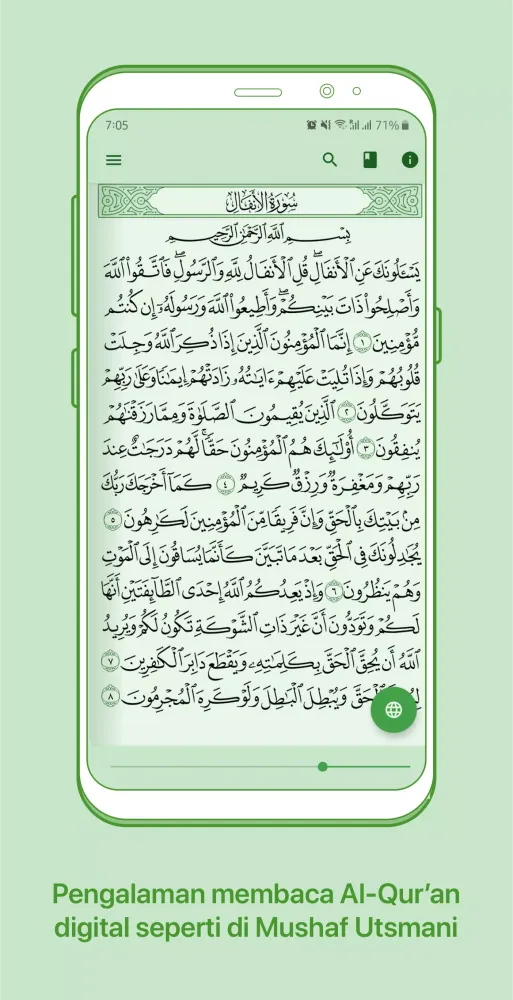 7:05 71%
سُورَةُ الأَنفَالِ
بِسْمِ اللَّهِ الرَّحْمَٰنِ الرَّحِيمِ
يَسْـَٔلُونَكَ عَنِ ٱلْأَنفَالِ ۖ قُلِ ٱلْأَنفَالُ لِلَّهِ وَٱلرَّسُولِ ۖ فَٱتَّقُوا۟ ٱللَّهَ
وَأَصْلِحُوا۟ ذَاتَ بَيْنِكُمْ ۖ وَأَطِيعُوا۟ ٱللَّهَ وَرَسُولَهُۥٓ إِن كُنتُم
مُّؤْمِنِينَ ١ إِنَّمَا ٱلْمُؤْمِنُونَ ٱلَّذِينَ إِذَا ذُكِرَ ٱللَّهُ وَجِلَتْ
قُلُوبُهُمْ وَإِذَا تُلِيَتْ عَلَيْهِمْ ءَايَـٰتُهُۥ زَادَتْهُمْ إِيمَـٰنًا وَعَلَىٰ رَبِّهِمْ
يَتَوَكَّلُونَ ٢ ٱلَّذِينَ يُقِيمُونَ ٱلصَّلَوٰةَ وَمِمَّا رَزَقْنَـٰهُمْ
يُنفِقُونَ ٣ أُو۟لَـٰٓئِكَ هُمُ ٱلْمُؤْمِنُونَ حَقًّا ۚ لَّهُمْ دَرَجَـٰتٌ عِندَ
رَبِّهِمْ وَمَغْفِرَةٌ وَرِزْقٌ كَرِيمٌ ٤ كَمَآ أَخْرَجَكَ رَبُّكَ
مِنۢ بَيْتِكَ بِٱلْحَقِّ وَإِنَّ فَرِيقًا مِّنَ ٱلْمُؤْمِنِينَ لَكَـٰرِهُونَ ٥
يُجَـٰدِلُونَكَ فِى ٱلْحَقِّ بَعْدَ مَا تَبَيَّنَ كَأَنَّمَا يُسَاقُونَ إِلَى ٱلْمَوْتِ
وَهُمْ يَنظُرُونَ ٦ وَإِذْ يَعِدُكُمُ ٱللَّهُ إِحْدَى ٱلطَّآئِفَتَيْنِ أَنَّهَا
لَكُمْ وَتَوَدُّونَ أَنَّ غَيْرَ ذَاتِ ٱلشَّوْكَةِ تَكُونُ لَكُمْ وَيُرِيدُ
ٱللَّهُ أَن يُحِقَّ ٱلْحَقَّ بِكَلِمَـٰتِهِۦ وَيَقْطَعَ دَابِرَ ٱلْكَـٰفِرِينَ ٧
ٱلْحَقَّ وَيُبْطِلَ ٱلْبَـٰطِلَ وَلَوْ كَرِهَ ٱلْمُجْرِمُونَ ٨
Pengalaman membaca Al-Qur’an
digital seperti di Mushaf Utsmani